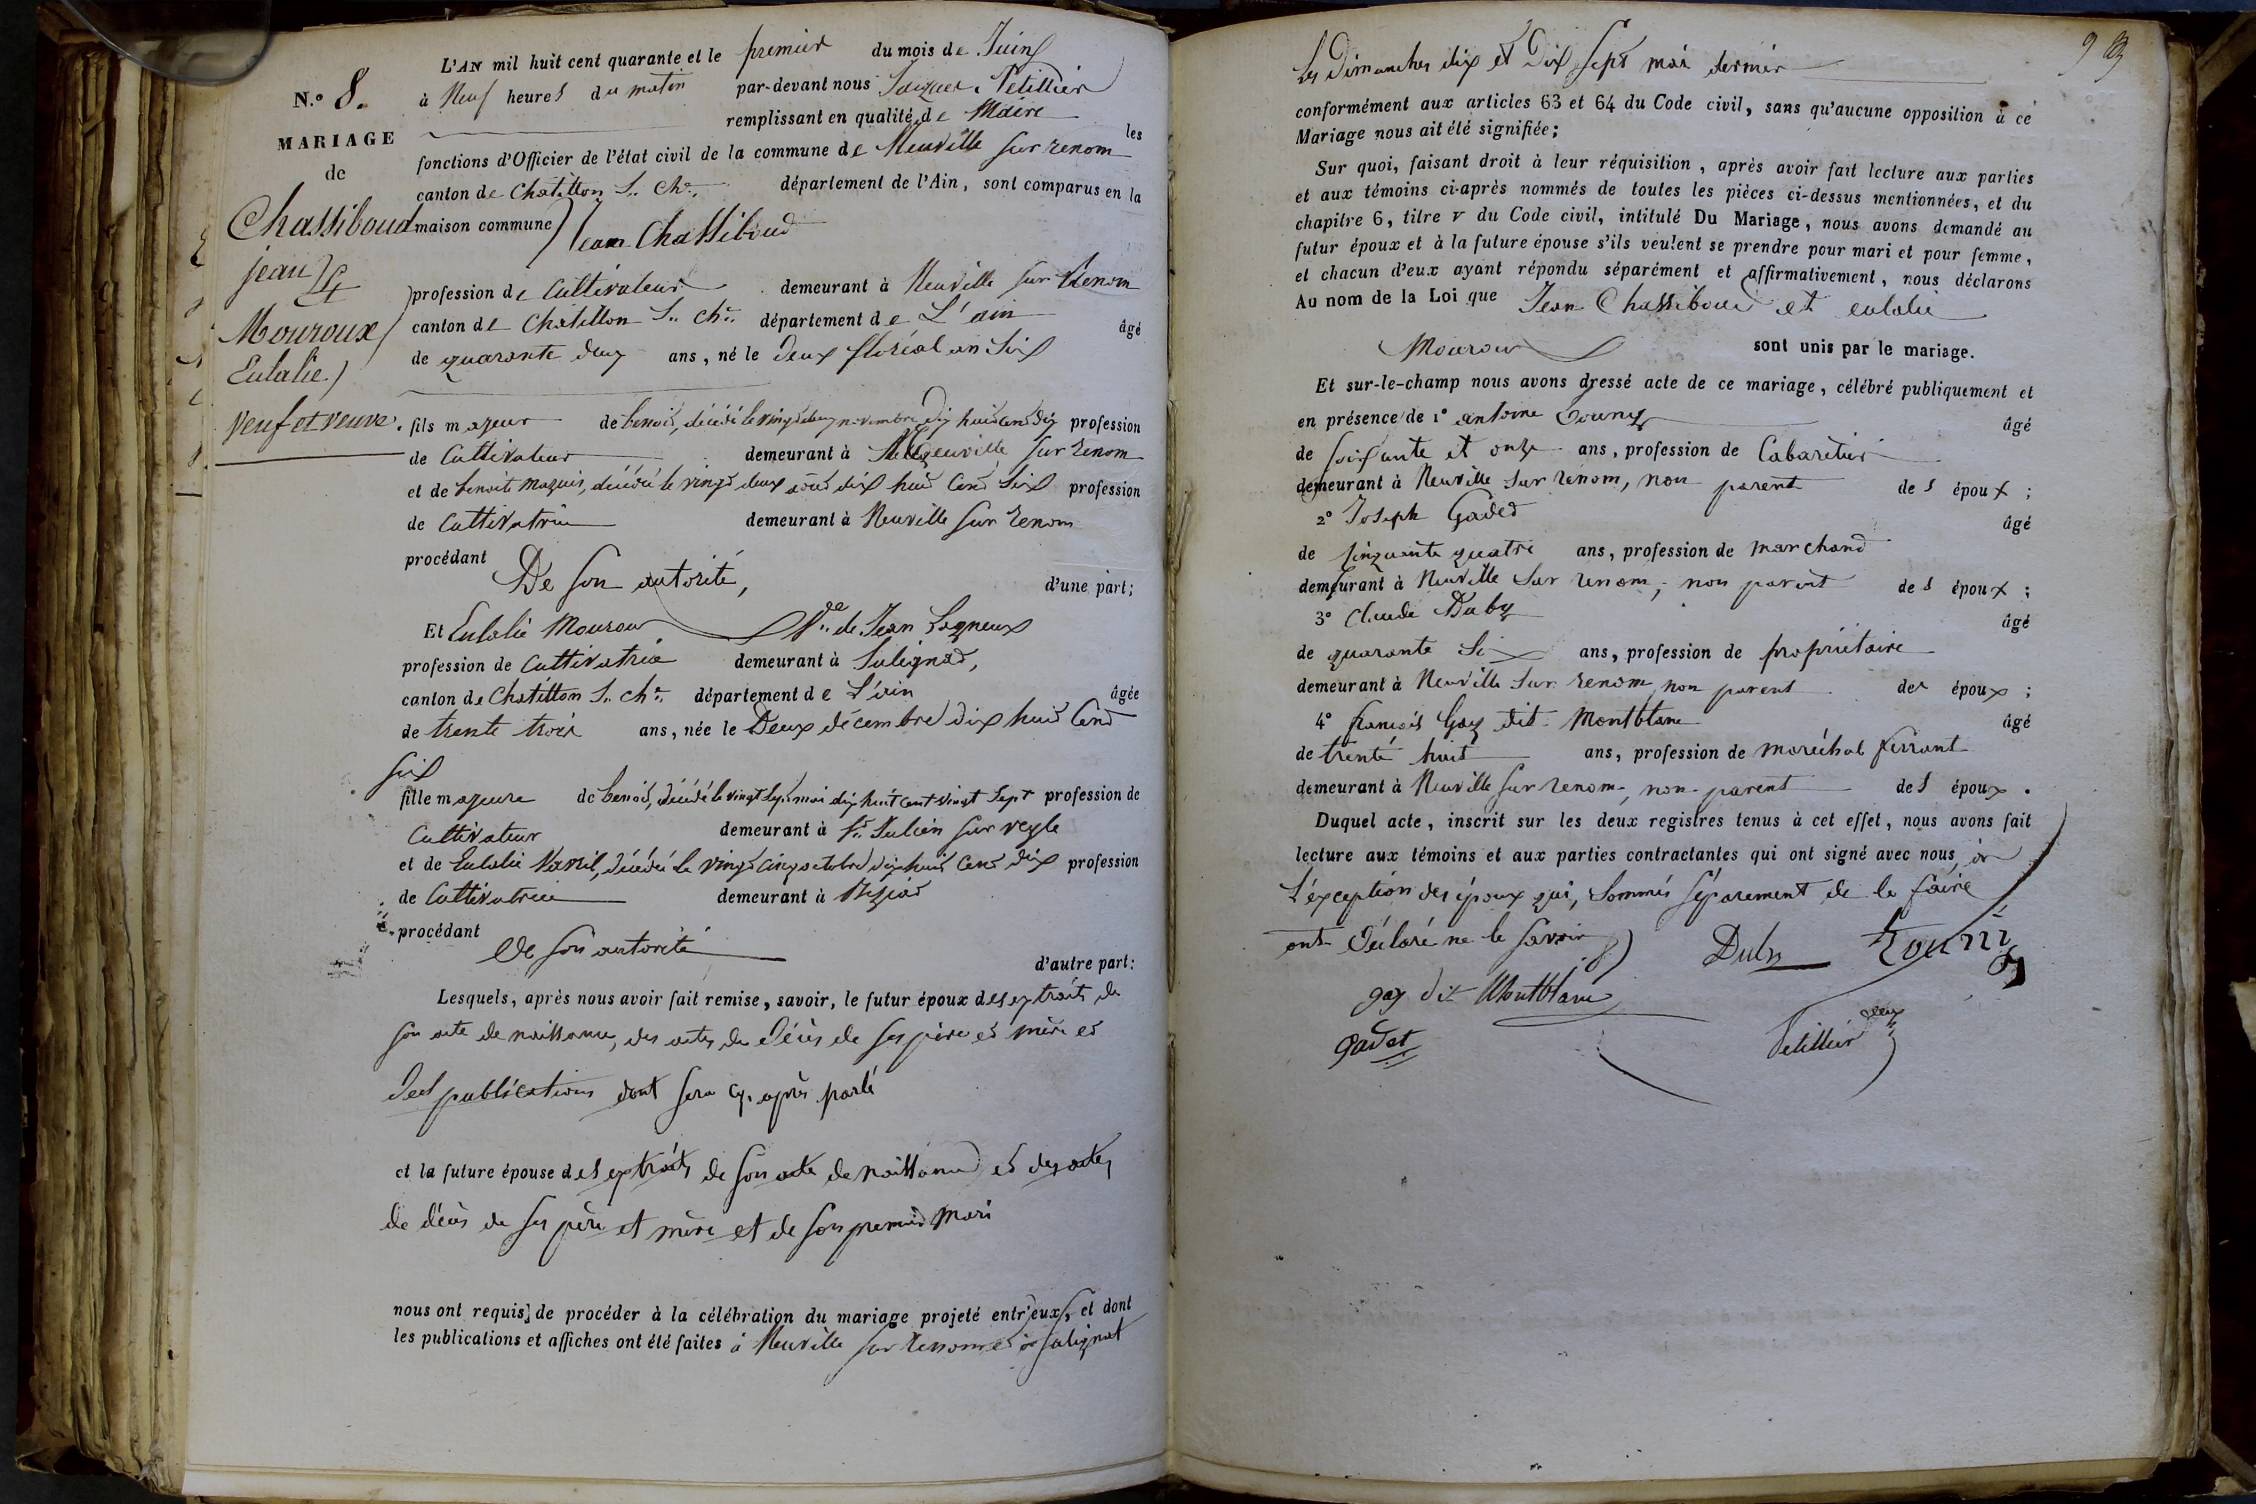 N.º 8.
MARIAGE
de
Chassiboud
jean et
Mouroux
Eulalie
veuf et veuve.
L'AN mil huit cent quarante et le premier du mois de Juin
à Neuf heures du matin par-devant nous Jacques Petillier
remplissant en qualité de Maire les
fonctions d'Officier de l'état civil de la commune de Neuville sur renom
canton de Chatillon s. ch.e département de l'Ain, sont comparus en la
maison commune Jean Chassiboud
profession de Cultivateur demeurant à Neuville sur Renom
canton de Chatillon s. ch.e département de L'ain âgé
de quarante deux ans, né le deux floréal an six
fils majeur de benoit, décédé le vingt deux novembre dix huit cent dix profession
de Cultivateur demeurant à Neuville sur renom
et de benoite Maguin, décédée le vingt deux août dix huit cent six profession
de Cultivatrice demeurant à Neuville sur renom
procédant De son autorité, d'une part;
Et Eulalie Mouroux V.ve de Jean Lagneux
profession de Cultivatrice demeurant à Sulignad,
canton de Chatillon s. ch.e département de L'ain âgée
de trente trois ans, née le Deux décembre dix huit Cent
six
fille majeure de benoit, décédé le vingt sept mai dix huit cent vingt sept profession de
Cultivateur demeurant à St Julien sur veyle
et de Eulalie décédée le vingt cinq octobre dix huit cent dix profession
de Cultivatrice demeurant à
procédant de son autorité
d'autre part:
Lesquels, après nous avoir fait remise, savoir, le futur époux des extraits de
son acte de naissance, des actes de décès de ses père et mère et
des publications dont sera cy-après parlé
et la future épouse des extraits de son acte de naissance et des actes
de décès de ses père et mère et de son premier mari
nous ont requis de procéder à la célébration du mariage projeté entr'eux, et dont
les publications et affiches ont été faites à Neuville sur renom et à Sulignat
les Dimanches dix et Dix sept mai dernier
conformément aux articles 63 et 64 du Code civil, sans qu'aucune opposition à ce
Mariage nous ait été signifiée;
Sur quoi, faisant droit à leur réquisition, après avoir fait lecture aux parties
et aux témoins ci-après nommés de toutes les pièces ci-dessus mentionnées, et du
chapitre 6, titre v du Code civil, intitulé Du Mariage, nous avons demandé au
futur époux et à la future épouse s'ils veulent se prendre pour mari et pour femme,
et chacun d'eux ayant répondu séparément et affirmativement, nous déclarons
Au nom de la Loi que Jean Chassiboud et eulalie
Mouroux sont unis par le mariage.
Et sur-le-champ nous avons dressé acte de ce mariage, célébré publiquement et
en présence de 1º antoine Tourny âgé
de soixante et onze ans, profession de Cabaretier
demeurant à Neuville sur renom, non parent des époux;
2º Joseph Gadet âgé
de cinquante quatre ans, profession de marchand
demeurant à Neuville sur renom, non parent des époux;
3º Claude Duby âgé
de quarante six ans, profession de propriétaire
demeurant à Neuville sur renom non parent des époux;
4º françois Gay dit Montblanc âgé
de trente huit ans, profession de maréchal ferrant
demeurant à Neuville sur renom, non parent des époux.
Duquel acte, inscrit sur les deux registres tenus à cet effet, nous avons fait
lecture aux témoins et aux parties contractantes qui ont signé avec nous à
L'exception des époux qui, sommés séparement de le faire
ont déclaré ne le savoir
Duby Tourny
gay dit Montblanc
gadet Petillier